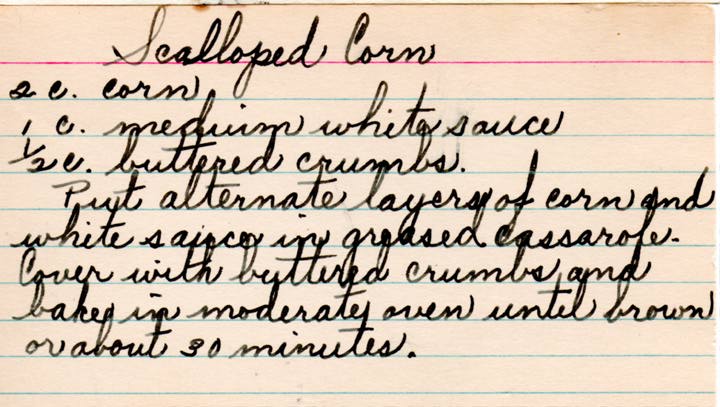 Scalloped Corn
2 c. corn
1 c. medium white sauce
1/2 c. buttered crumbs.
Put alternate layers of corn and
white sauce in greased cassarole.
Cover with buttered crumbs and
bake in moderate oven until brown
or about 30 minutes.